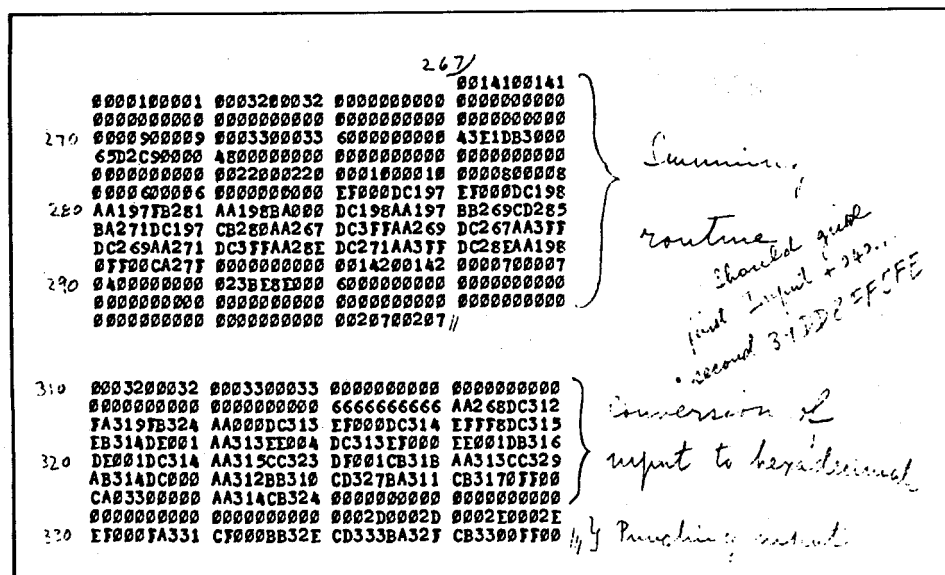 267
0014100141
0000100001 0003200032 0000000000 0000000000
0000000000 0000000000 0000000000 0000000000
270 0000900009 0003300033 6000000000 43E1DB3000
65D2C90000 4800000000 0000000000 0000000000
0000000000 0022000220 0001000010 0000800008
0000600006 0000000000 EF000DC197 EF000DC198
280 AA197FB281 AA198BA000 DC198AA197 BB269CD285
BA271DC197 CB280AA267 DC3FFAA269 DC267AA3FF
DC269AA271 DC3FFAA28E DC271AA3FF DC28EAA198
0FF00CA27F 0000000000 0014200142 0000700007
290 0400000000 023BE8E000 6000000000 0000000000
0000000000 0000000000 0000000000 0000000000
0000000000 0000000000 0020700207 //
Summing
routine
Should give
first Input +
second
310 0003200032 0003300033 0000000000 0000000000
0000000000 0000000000 6666666666 AA268DC312
FA319FB324 AA000DC313 EF000DC314 EFFF8DC315
EB314DE001 AA313EE004 DC313EF000 EE001DB316
320 DE001DC314 AA315CC323 DF001CB31B AA313CC329
AB314DC000 AA312BB310 CD327BA311 CB3170FF00
CA03300000 AA314CB324 0000000000 0000000000
0000000000 0000000000 0002D0002D 0002E0002E
330 EF000FA331 CF000BB32E CD333BA32F CB3300FF00 //
Conversion of
input to hexadecimal
Punching